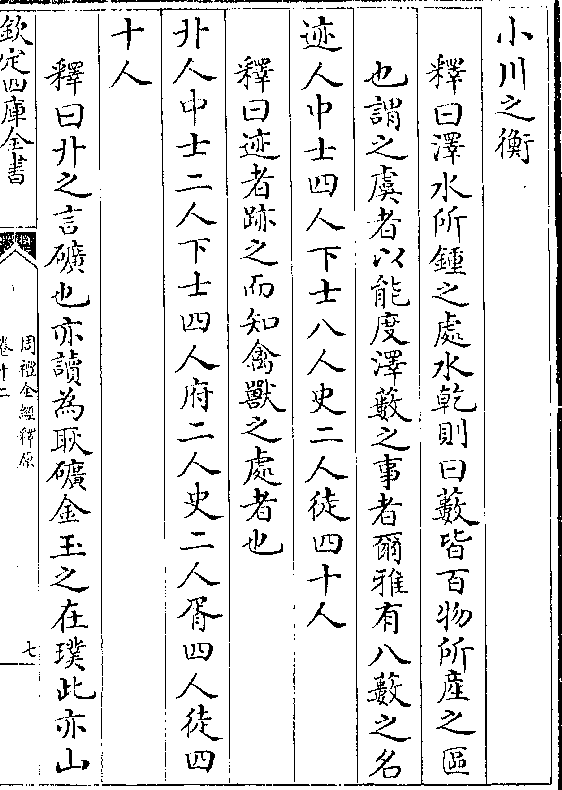 小川之衡
釋曰澤水所鍾之處水乾則曰藪皆百物所產之區
也謂之虞者以能度澤藪之事者爾雅有八藪之名
迹人中士四人下士八人史二人徒四十人
釋曰迹者跡之而知禽獸之處者也
丱人中士二人下士四人府二人史二人胥四人徒四
十人
釋曰丱之言礦也亦讀為耿礦金玉之在璞此亦山
欽定四庫全書
周禮全經釋原
卷十二
七